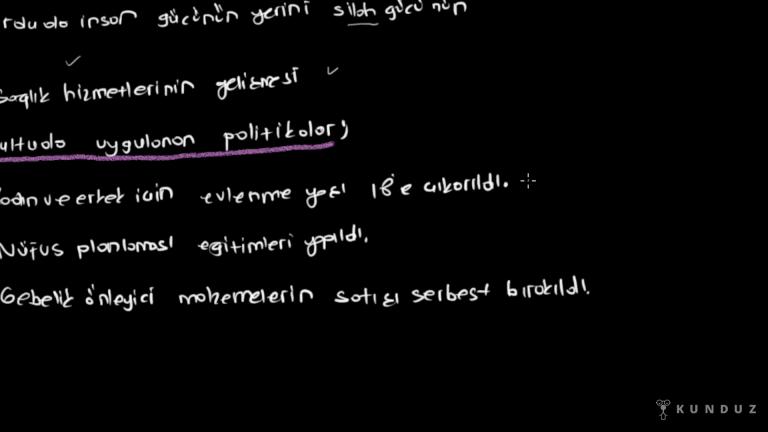 rduda insan gücünün yerini silah gücünün
Sağlık hizmetlerinin gelişmesi
ultuda uygulanan politikalar;
adın ve erkek için evlenme yaşı 18'e çıkarıldı.
Nüfus planlaması eğitimleri yapıldı.
Gebelik önleyici mahemelerin satışı serbest bırakıldı.
KUNDUZ